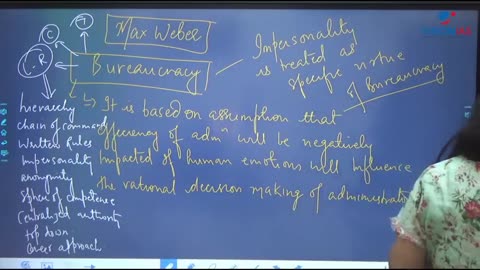 T
Max Weber
C
L.R
Bureaucracy
Impersonality
is treated as
specific virtue
of Bureaucracy
→ It is based on assumption that
efficiency of admⁿ will be negatively
impacted if human emotions will influence
the rational decision making of administrator
hierarchy
chain of command
Written Rules
Impersonality
anonymity
Sphere of competence
Centralized authority
top down
approach